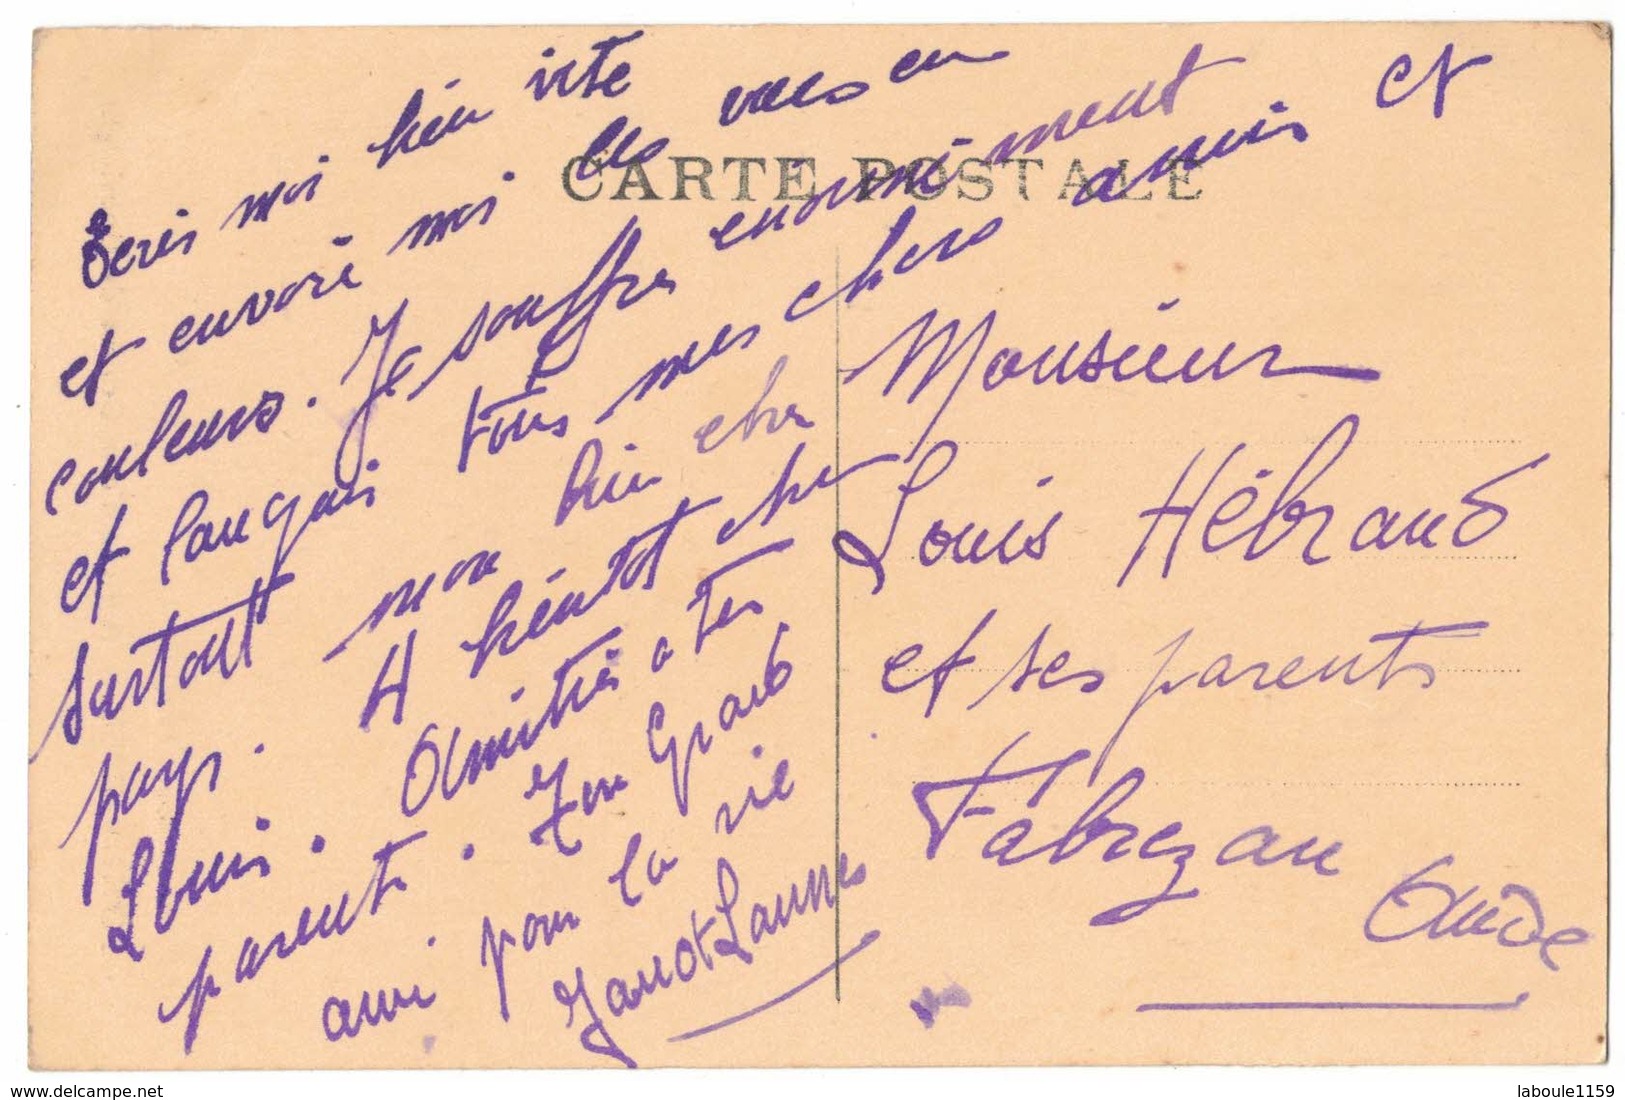 Ecris moi bien vite
et envoie moi les vues en
couleurs. Je souffre enormément
et languis tous mes chers amis et
surtout mon bien cher
pays. A bientôt cher
Louis. Amitiés a tes
parents. Ton Grand
ami pour la vie
Janot Lannes
CARTE POSTALE
Monsieur
Louis Hébraud
et ses parents
Fabrezan
Aude
www.delcampe.net
laboule1159